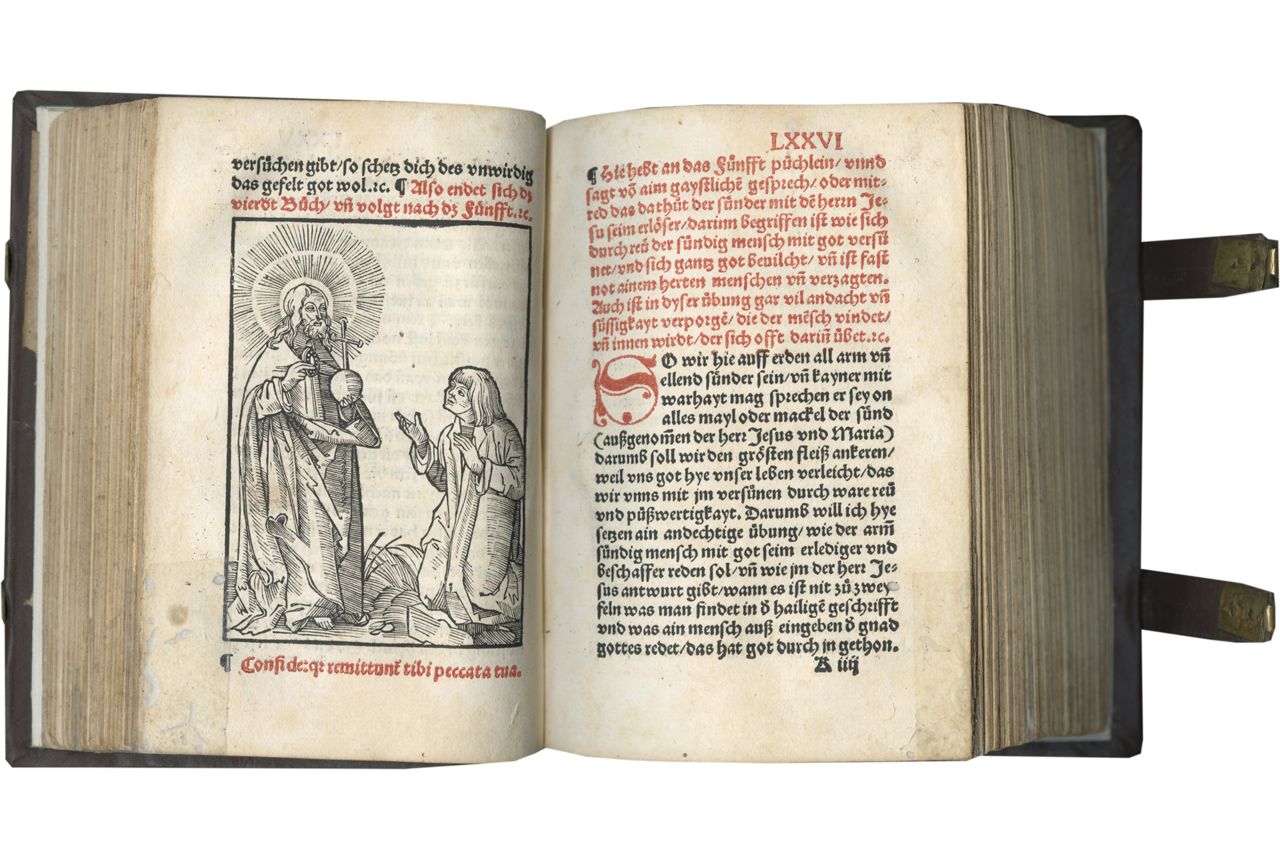 versůchen gibt/so schetz dich des vnwirdig
das gefelt got wol.ꝛc. ¶ Also endet sich dz
vierdt Bůch/ vn̄ volgt nach dz Fünfft.ꝛc.
¶ Confide:qꝛ remittunt̄ tibi peccata tua.
LXXVI
¶ Hie hebt an das Fünfft půchlein/ vnnd
sagt vō aim gaystlichē gesprech/ oder mit-
red das da thůt der sünder mit dē herrn Je-
su seim erlöser/ darinn begriffen ist wie sich
durch reü der sündig mensch mit got versü
net/vnd sich gantz got beuilcht/ vn̄ ist fast
not ainem herten menschen vn̄ verzagten.
Auch ist in dyser übung gar vil andacht vn̄
süssigkayt verporgē/ die der mēsch vindet/
vn̄ innen wirdt/ der sich offt dariñ übet.ꝛc.
SO wir hie auff erden all arm vn̄
ellend sünder sein/ vn̄ kayner mit
warhayt mag sprechen er sey on
alles mayl oder mackel der sünd
(außgenom̄en der herr Jesus vnd Maria)
darumb soll wir den grösten fleiß ankeren/
weil vns got hye vnser leben verleicht/das
wir vnns mit jm versünen durch ware reü
vnd půßwertigkayt. Darumb will ich hye
setzen ain andechtige übung/ wie der arm̄
sündig mensch mit got seim erlediger vnd
beschaffer reden sol/ vn̄ wie jm der herr Je-
sus antwurt gibt/wann es ist nit zů zwey
feln was man findet in ð hailigē geschrifft
vnd was ain mensch auß eingeben ð gnad
gottes redet/das hat got durch jn gethon.
K iiij